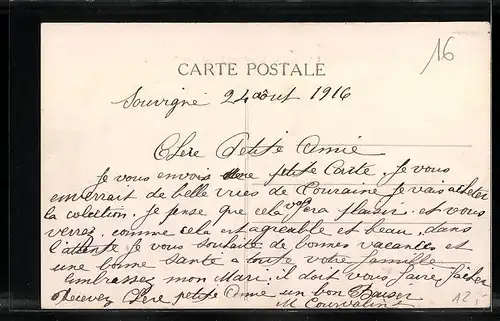 16
CARTE POSTALE
Souvigné 24 août 1916
Chère Petite Amie
Je vous envois une petite Carte. Je vous
enverrait de belle vues de Touraine je vais acheter
la colection. Je pense que cela vous fera plaisir. et vous
verrez. comme cela est agreable et beau, dans
l'attente Je vous souhaite de bonnes vacances et
une bonne santé a toute votre famille
Embrassez mon Mari; il doit vous faire facher
Recevez Chère petite Amie un bon Baiser
M Courvalin
12